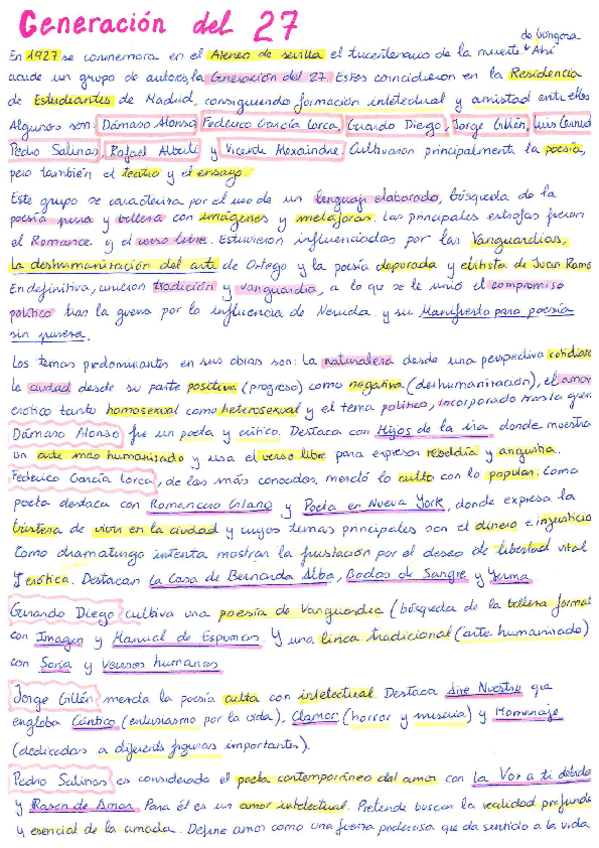 Generación del 27
En 1927 se conmemora en el Ateneo de Sevilla el tricentenario de la muerte de Góngora. Ahí
acude un grupo de autores, la Generación del 27. Estos coincidieron en la Residencia
de Estudiantes de Madrid, consiguiendo formación intelectual y amistad entre ellos
Algunos son: Dámaso Alonso, Federico García Lorca, Gerardo Diego, Jorge Gillén, Luis Cernud
Pedro Salinas, Rafael Alberti y Vicente Aleixaindre. Cultivaron principalmente la poesía,
pero también el teatro y el ensayo.
Este grupo se caracteriza por el uso de un lenguaje elaborado, búsqueda de la
poesía pura y belleza con imágenes y metáforas. Las principales estrofas fueron
el Romance y el verso libre. Estuvieron influenciados por las Vanguardias,
la deshumanización del arte de Ortega y la poesía depurada y elitista de Juan Ramó
En definitiva, unieron tradición y vanguardia, a lo que se le unió el compromiso
político tras la guerra por la influencia de Neruda y su Manifiesto para poesía
sin pureza.
Los temas predominantes en sus obras son: La naturaleza desde una perspectiva cotidiana
la ciudad desde su parte positiva (progreso) como negativa (deshumanización), el amor
erótico tanto homosexual como heterosexual y el tema político, incorporado tras la guerr
Dámaso Alonso fue un poeta y crítico. Destaca con Hijos de la ira donde muestra
un arte más humanizado y usa el verso libre para expresar rebeldía y angustia.
Federico García Lorca, de los más conocidos, mezcló lo culto con lo popular. Como
poeta destaca con Romancero Gitano y Poeta en Nueva York, donde expresa la
tristeza de vivir en la ciudad y cuyos temas principales son el dinero e injusticia
Como dramaturgo intenta mostrar la frustación por el deseo de libertad vital
y erótica. Destacan La Casa de Bernarda Alba, Bodas de Sangre y Yerma
Gerardo Diego cultiva una poesía de Vanguardia (búsqueda de la belleza formal
con Imagen y Manual de Espumas. Y una lírica tradicional (arte humanizado)
con Soria y Versos humanos
Jorge Gillén mezcla la poesía culta con intelectual. Destaca Aire Nuestro que
engloba Cántico (entusiasmo por la vida), Clamor (horror y miseria) y Homenaje
(dedicadas a diferents figuras importantes).
Pedro Salinas es considerado el poeta contemporáneo del amor con La Voz a ti debida
y Razón de Amor. Para él es un amor intelectual. Pretende buscar la realidad profunda
y esencial de la amada. Define amor como una fuerza poderosa que da sentido a la vida